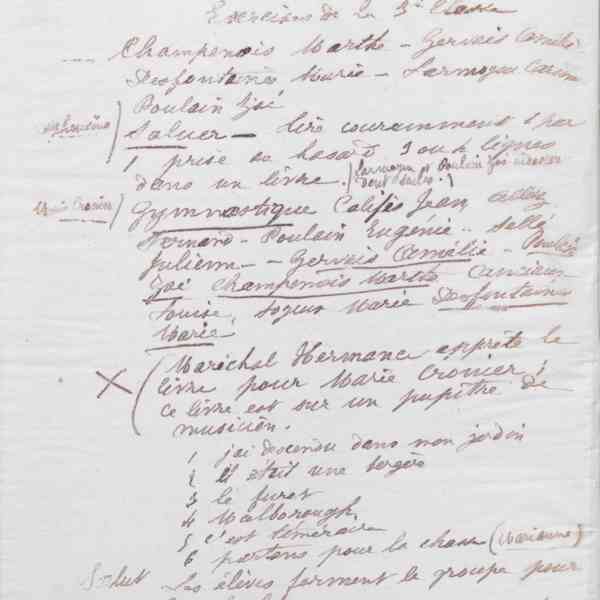 Exercices de la 3e Classe
Champenois Marthe - Gervais Camélie
Desfontaines Marie - Larmoyer
Poulain Zoé
Saluer - lire couramment 1 par
1 prise au hasard 3 ou 4 lignes
dans un livre. (Larmoyer et Poulain Zoé
dont seules.)
Marie Cronier) Gymnastique Califes Jean
Fernand - Poulain Eugénie - Sallé
Julienne - Gervais Camélie - Poulain
Zoé Champenois Marthe
Louise, Marie Desfontaines
Marie.
Maréchal Hermance apprête le
livre pour Marie Cronier ;
ce livre est sur un pupitre de
musicien.
1 j'ai descendu dans mon jardin
2 il était une bergère
3 le furet
4 Malborough.
5 c'est téméraire
6 partons pour la chasse (Marianne)
Salut Les élèves forment le groupe pour